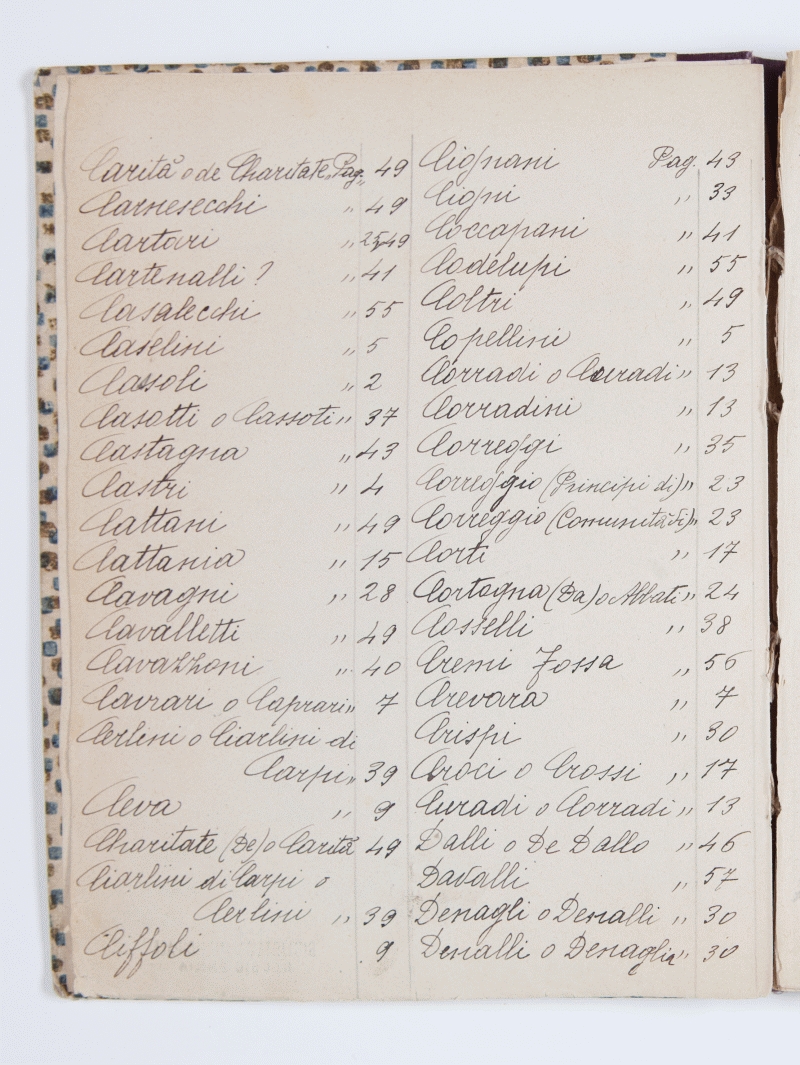 Carità o de Charitate „ Pag. „ 49
Carnesecchi „ 49
Cartari „ 25,49
Cartenalli ? „ 41
Casalecchi „ 55
Caselini „ 5
Cassoli „ 2
Casotti o Cassoti „ 37
Castagna „ 43
Castri „ 4
Cattani „ 49
Cattania „ 15
Cavagni „ 28
Cavalletti „ 49
Cavazzoni „ 40
Cavrari o Caprari „ 7
Cerlini o Ciarlini di
Carpi „ 39
Ceva „ 9
Charitate (De) o Carità 49
Ciarlini di Carpi o
Cerlini „ 39
Ciffoli 9
Cignani Pag. 43
Cigni „ 33
Coccapani „ 41
Codelupi „ 55
Coltri „ 49
Copellini „ 5
Corradi o Curradi „ 13
Corradini „ 13
Correggi „ 35
Correggio (Principi di) „ 23
Correggio (Comunità di) „ 23
Corti „ 17
Cortogna (Da) o Abbati „ 24
Cosselli „ 38
Cremi Fossa „ 56
Crevara „ 7
Crispi „ 30
Croci o Crossi „ 17
Curadi o Corradi „ 13
Dalli o De Dallo „ 46
Davalli „ 57
Denagli o Denalli „ 30
Denalli o Denaglia „ 30